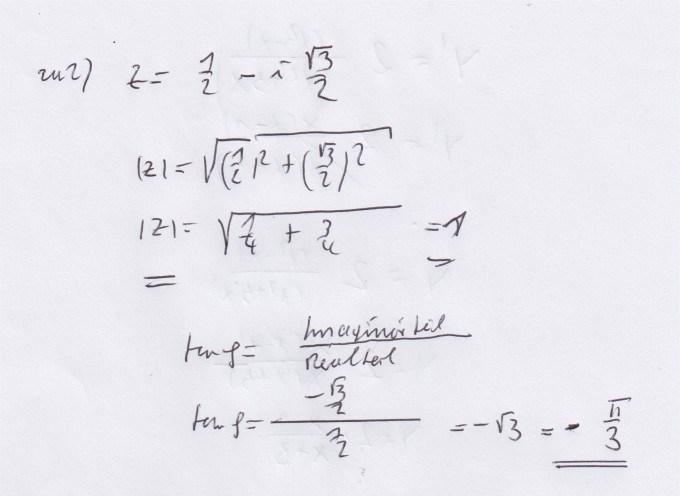 zu 2) z = 1/2 - i √3/2
|z| = √((1/2)² + (√3/2)²)
|z| = √(1/4 + 3/4) = 1
tan φ = Imaginärteil/Realteil
tan φ = (-√3/2)/(1/2) = -√3 = - π/3